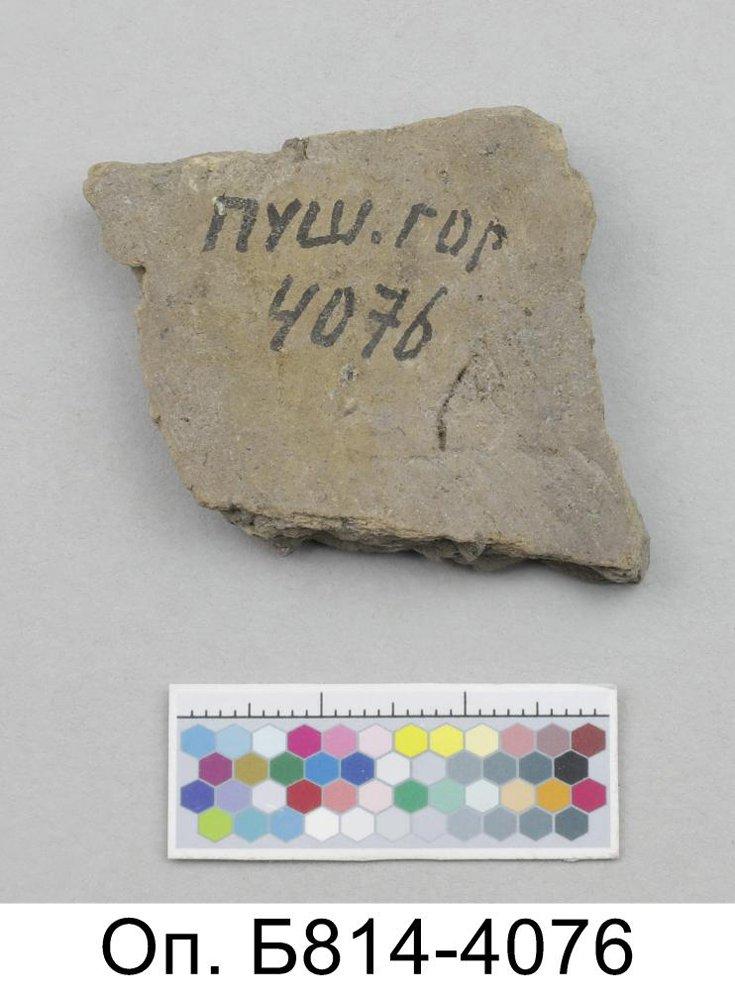 ПУШ.ГОР
4076
Оп. Б814-4076